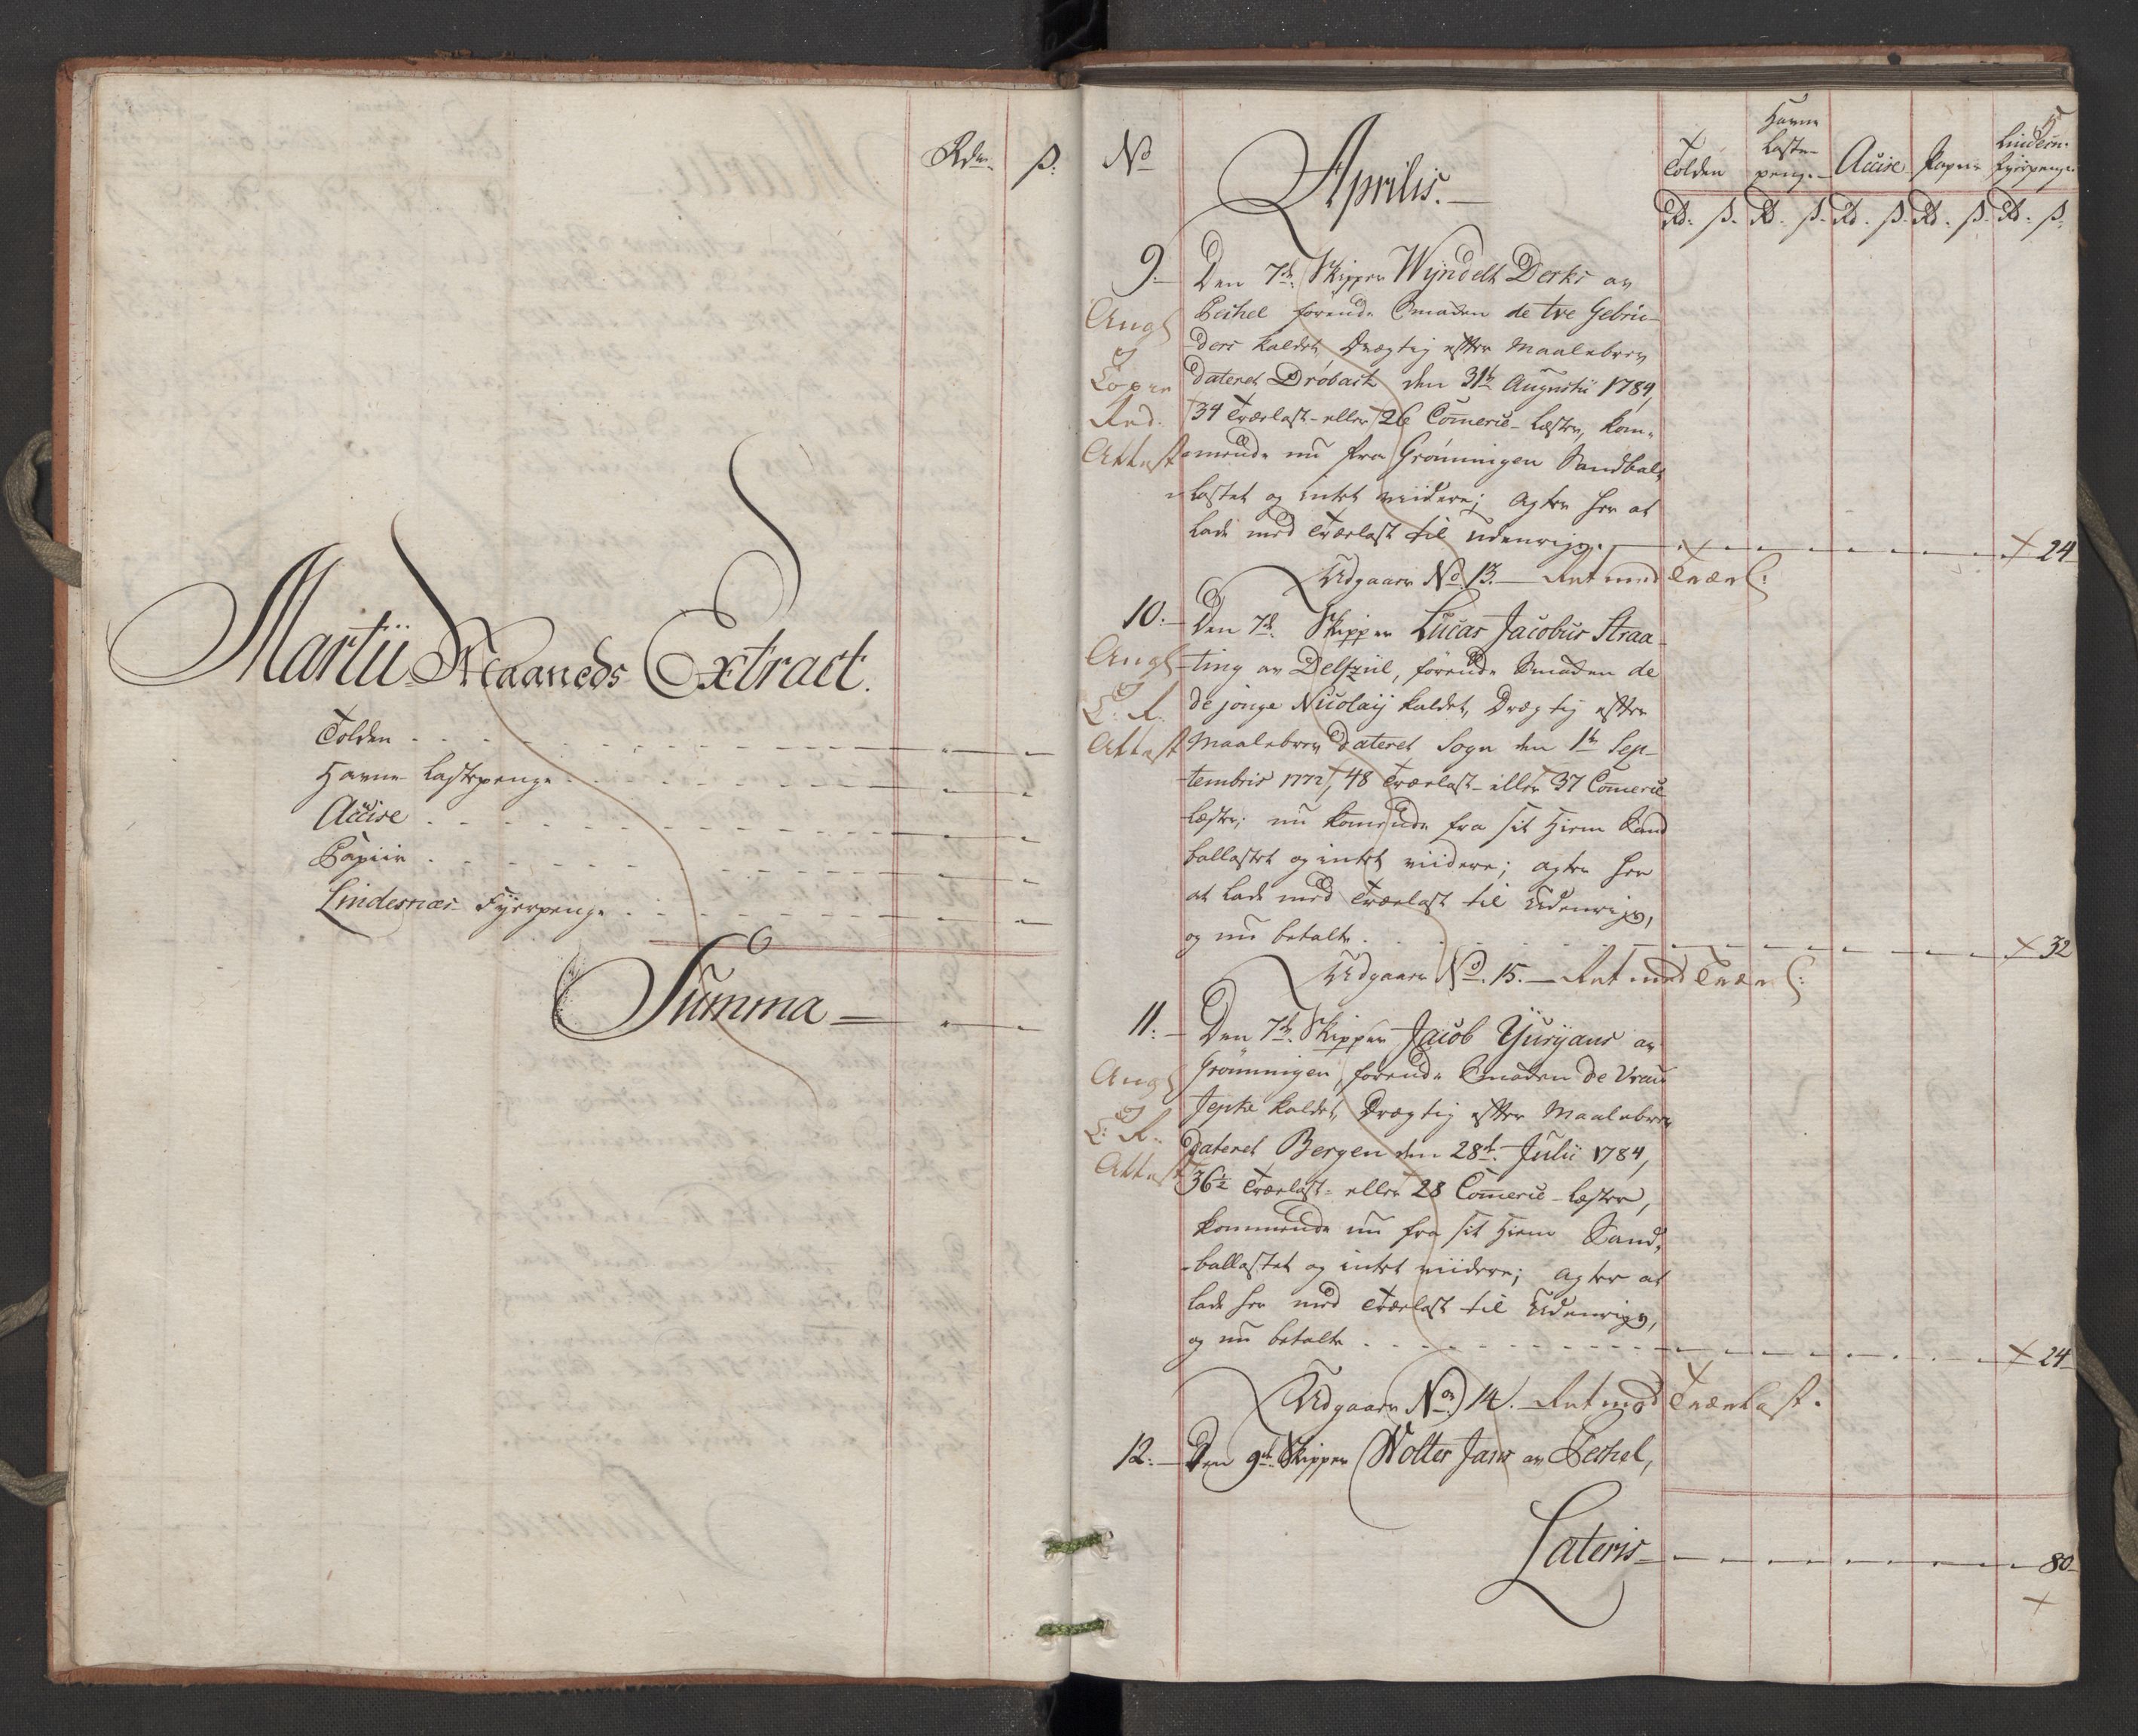 Rdr. ß.
Martii Maaneds Extract.
Tolden
Havne Lastepenge
Accise
Papiir
Lindesnæs Fyrpenge
Summa
No
Aprilis.
Tolden
Havne
Laste-
peng.
Accise
Papiir
Lindesn.
Fyrpenge
5
Rd. ß. Rd. ß. Rd. ß. Rd. ß. Rd. ß.
9. Den 7de Skipper Wyndelt Derks av
Peckel førende Smakken de tve Gebrü-
-ders kaldet, Drægtig efter Maalebrev
dateret Drøback den 31te Augustii 1784,
34 Trælast- eller 26 Comerce-Læster, kom-
omende nu fra Grønningen Sandbal-
-lastet og intet viidere; agter her at
lade med Trælast til udenrigs. 24
Ang
Copie
Red.
Attest
Udgaaer No 13. Ret med Træel:
10. Den 7de Skipper Lucas Jacobus Straa-
-ting av Delfzül, førende Smakken de
de jonge Nicolaij kaldet, Drægtig efter
Maalebrev dateret Sogn den 1te Sep-
-tembris 1772, 48 Trælast- eller 37 Comerce
Læster; nu komende fra sit Hiem Sand
ballastet og intet viidere; agter her
at lade med Trælast til Udenrigs,
og nu betalte 32
Ang
C. R.
Attest
Udgaaer No. 15. Ret med Træel:
11. Den 7de Skipper Jacob Yurijans av
Grønningen, førende Smakken de Vrau
Jepke kaldet, Drægtig efter Maalebrev
dateret Bergen den 28de Julii 1784,
36½ Trælast- eller 28 Comerce-Læster,
kommende nu fra sit Hiem Sand-
-ballastet og intet viidere; agter at
lade her med Trælast til Udenrigs,
og nu betalte 24
Ang
C. R.
Attest
Udgaaer No. 14. Ret med Trælast.
12. Den 9de Skipper Wolter Jans av Peckel,
Lateris 80